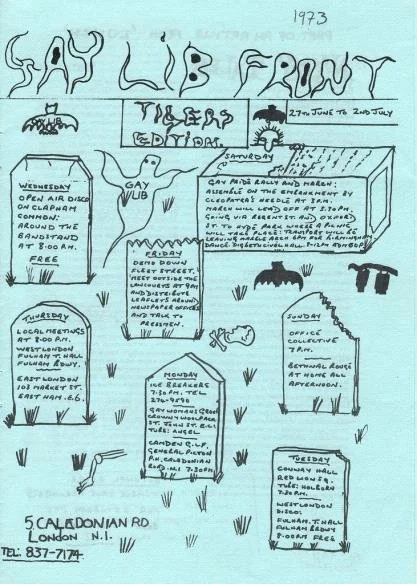 1973
GAY LIB FRONT
27TH JUNE TO 2ND JULY
EDITION
LIB
WEDNESDAY
OPEN AIR DISCO
ON CLAPHAM
COMMON:
AROUND THE
BANDSTAND
AT 8.00 P.M.
FREE
GAY
LIB
SATURDAY
GAY PRIDE RALLY AND MARCH:
ASSEMBLE ON THE EMBANKMENT BY
CLEOPATRA'S NEEDLE AT
MARCH WILL LEAD OFF
GOING VIA REGENT ST. AND OXFORD
ST. TO HYDE PARK WHERE A PICNIC
WILL TAKE PLACE: TRANSPORT WILL BE
LEAVING MARBLE ARCH 6PM FOR BIRMINGHAM
DANCE. DIGBETH CIVIC HALL.
FRIDAY
DEMO DOWN
FLEET STREET.
MEET OUTSIDE THE
LAW COURTS AT 9PM
AND DISTRIBUTE
LEAFLETS AROUND
NEWSPAPER OFFICES
AND TALK TO
PRESSMEN.
THURSDAY
LOCAL MEETINGS
AT 8.00 P.M.
WEST LONDON
FULHAM T. HALL
FULHAM BDWY.
EAST LONDON
103 MARKET ST.
EAST HAM. E6.
SUNDAY
OFFICE
COLLECTIVE
7 P.M.
BETHNAL ROUGE
AT HOME ALL
AFTERNOON.
MONDAY
ICE BREAKERS
7.30 P.M. TEL
GAY WOMANS GROUP
CROWN & WOOLPACK
ST. JOHN ST. E.C.1
TUBE: ANGEL
CAMDEN G.L.F.
GENERAL PICTON
P.H. CALEDONIAN
ROAD. N.1 7.30PM
TUESDAY
CONWAY HALL
RED LION SQ.
TUBE: HOLBORN
7.30 P.M.
WEST LONDON
DISCO:
FULHAM. T. HALL
FULHAM BDWY
8.00 PM FREE
5, CALEDONIAN RD
LONDON N.1.
TEL: 837-7174